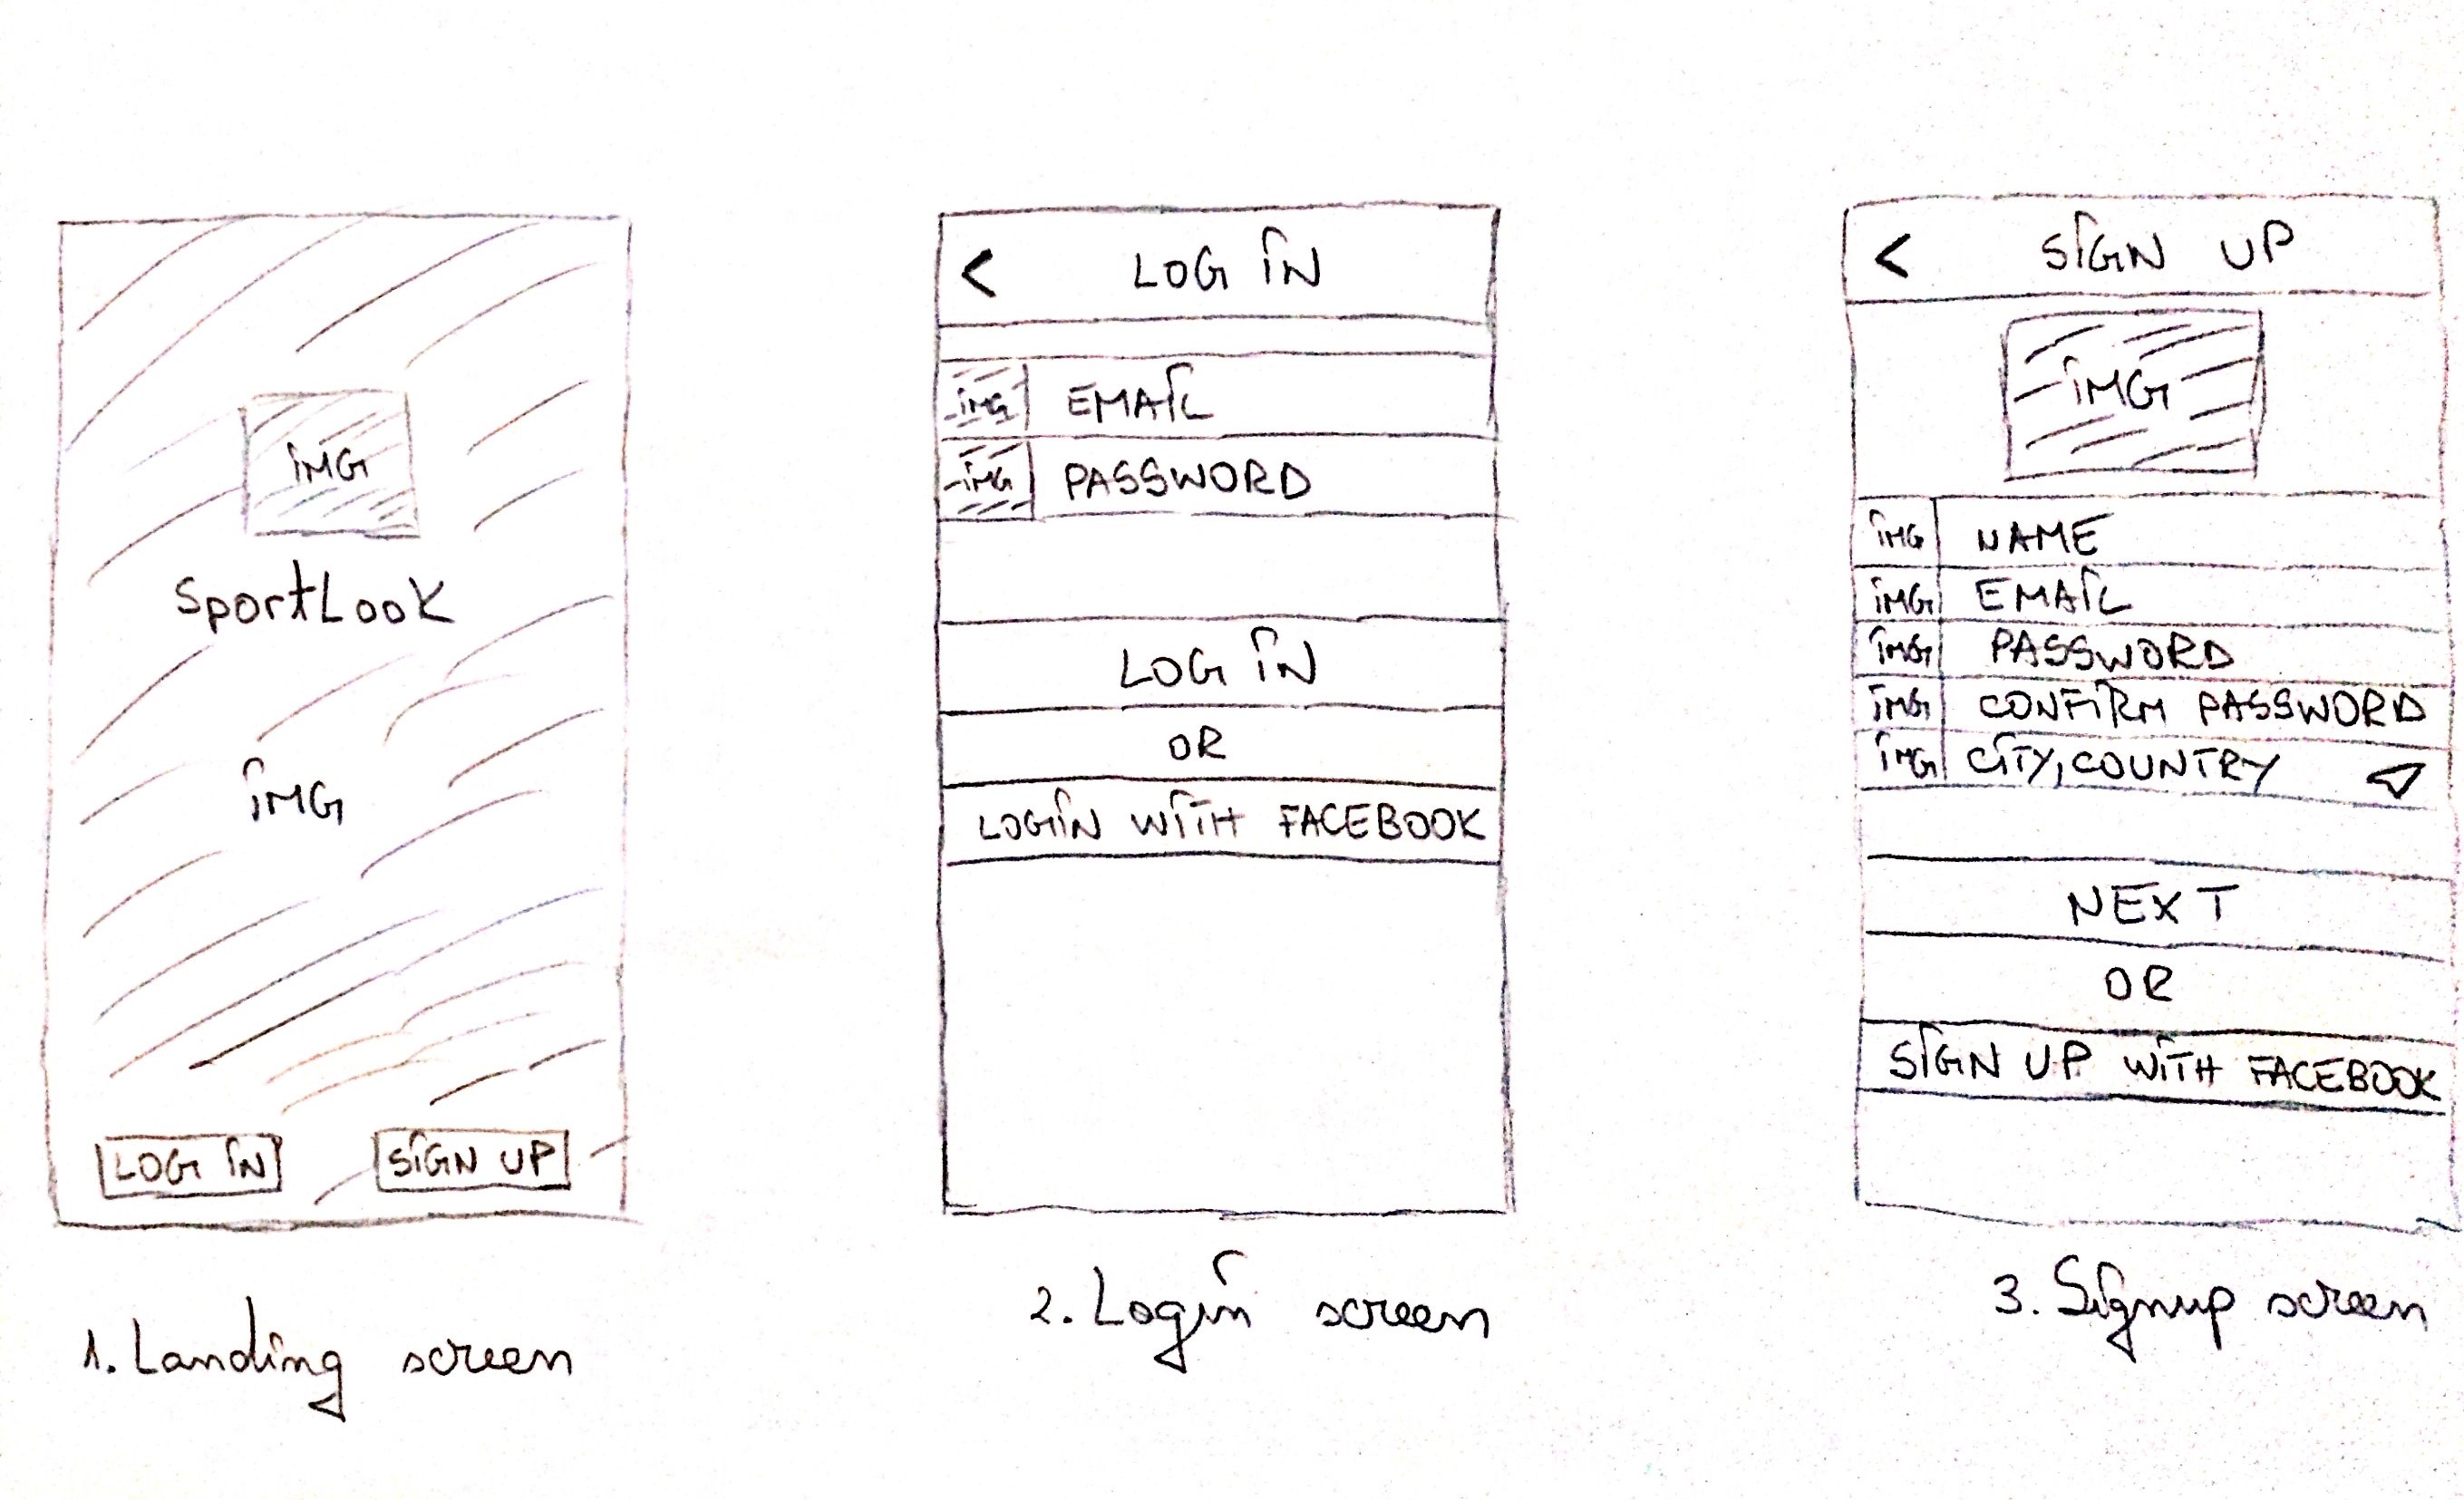 iMG
SportLook
iMG
LOG iN
SiGN UP
1. Landing screen
< LOG iN
iMG EMAiL
iMG PASSWORD
LOG iN
OR
LOGiN WiTH FACEBOOK
2. Login screen
< SiGN UP
iMG
iMG NAME
iMG EMAiL
iMG PASSWORD
iMG CONFiRM PASSWORD
iMG CiTY, COUNTRY
NEXT
OR
SiGN UP WiTH FACEBOOK
3. Signup screen